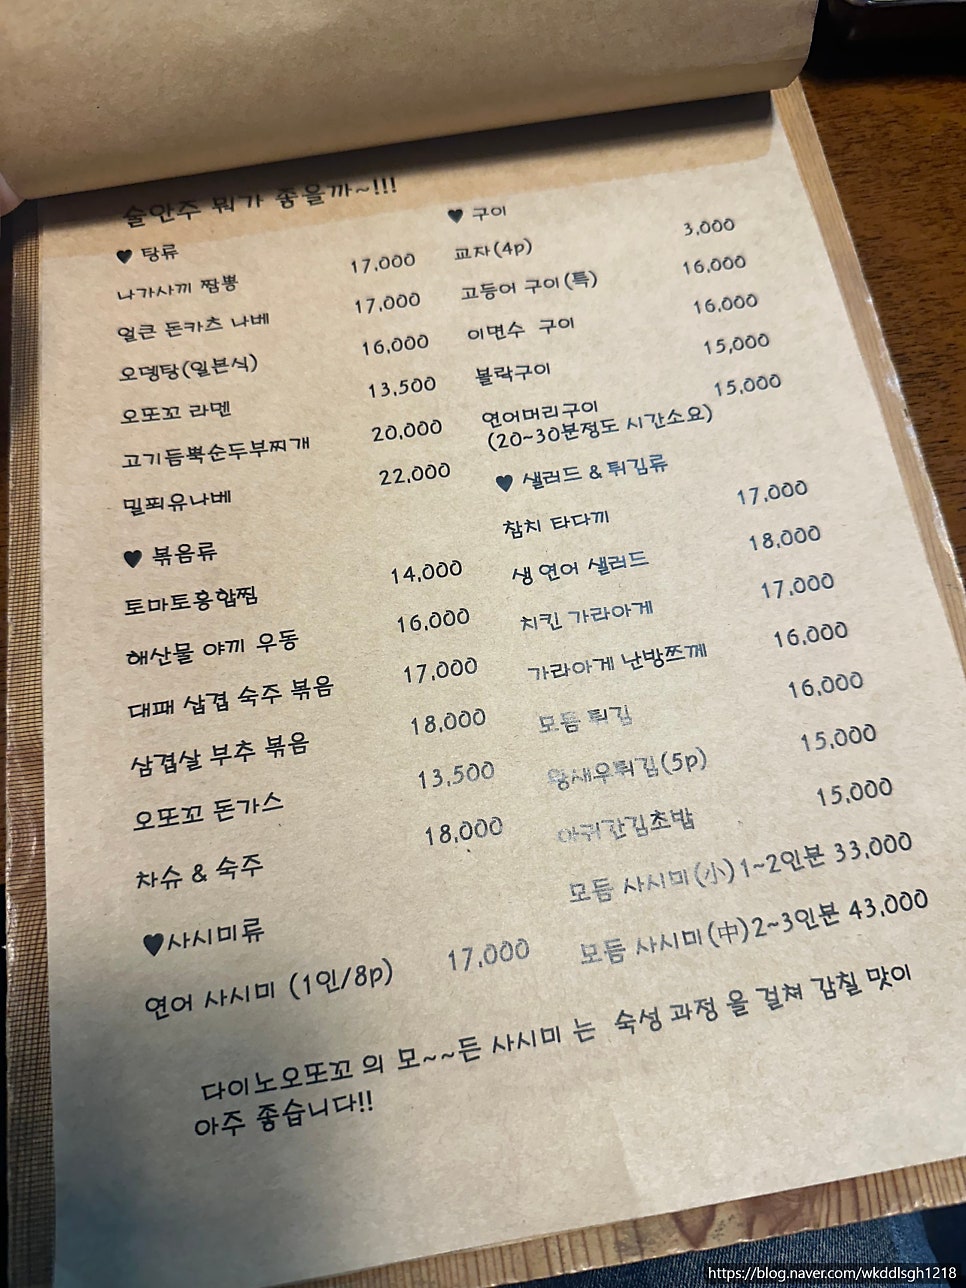 술안주 뭐가 좋을까~!!!
♥ 탕류
나가사끼 짬뽕 17,000
얼큰 돈카츠 나베 17,000
오뎅탕(일본식) 16,000
오또꼬 라멘 13,500
고기듬뿍순두부찌개 20,000
밀푀유나베 22,000
♥ 볶음류
토마토홍합찜 14,000
해산물 야끼 우동 16,000
대패 삼겹 숙주 볶음 17,000
삼겹살 부추 볶음 18,000
오또꼬 돈가스 13,500
차슈 & 숙주 18,000
♥사시미류
연어 사시미 (1인/8p) 17,000
♥ 구이
교자(4p) 3,000
고등어 구이(특) 16,000
이면수 구이 16,000
볼락구이 15,000
연어머리구이 15,000
(20~30분정도 시간소요)
♥ 샐러드 & 튀김류
참치 타다끼 17,000
생 연어 샐러드 18,000
치킨 가라아게 17,000
가라아게 난방쯔께 16,000
모듬 튀김 16,000
왕새우튀김(5p) 15,000
아귀간김초밥 15,000
모듬 사시미(小)1~2인분 33,000
모듬 사시미(中)2~3인분 43,000
다이노오또꼬 의 모~~든 사시미 는 숙성 과정 을 걸쳐 감칠 맛이
아주 좋습니다!!
https://blog.naver.com/wkddlsgh1218